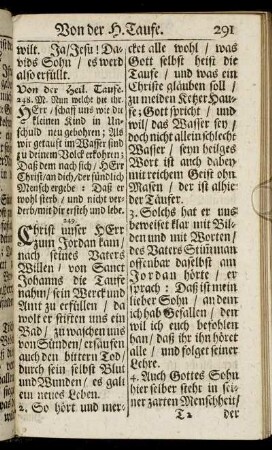 Von der H. Taufe. 291
wilt. Ja/Jesu! Da-
vids Sohn/ es werd
also erfüllt.
Von der Heil. Taufe.
248. M. Nun welche die ihr.
HErr/schaff uns wie die
kleinen Kind in Un-
schuld neu gebohren; Als
wir getauft im Wasser sind
zu deinem Volck erkohren:
Daß dem nach sich/HErr
Christ/an dich/der sündlich
Mensch ergebe: Daß er
wohl sterb/ und nicht ver-
derb/mit dir ersteh und lebe.
249.
Christ unser HErr
zum Jordan kam/
nach seines Vaters
Willen/ von Sanct
Johanns die Taufe
nahm/ sein Werck und
Amt zu erfüllen/ da
wolt er stiften uns ein
Bad/ zu waschen uns
von Sünden/ ersäufen
auch den bittern Tod/
durch sein selbst Blut
und Wunden/ es galt
ein neues Leben.
2. So hört und mer-
cket alle wohl/ was
Gott selbst heist die
Taufe/ und was ein
Christe gläuben soll/
zu meiden Ketzer Hau-
fe: Gott spricht/ und
will/ das Wasser sey/
doch nicht allein schlecht
Wasser/ seyn heilges
Wort ist auch dabey
mit reichem Geist ohn
Masen/ der ist alhie
der Täufer.
3. Solchs hat er uns
beweiset klar mit Bil-
den und mit Worten/
des Vaters Stim̃ man
offenbar daselbst am
Jordan hörte/ er
sprach: Daß ist mein
lieber Sohn/ an dem
ich hab Gefallen/ den
wil ich euch befohlen
han/ daß ihr ihn höret
alle/ und folget seiner
Lehre.
4. Auch Gottes Sohn
hier selber steht in sei-
ner zarten Menschheit/
T 2 der